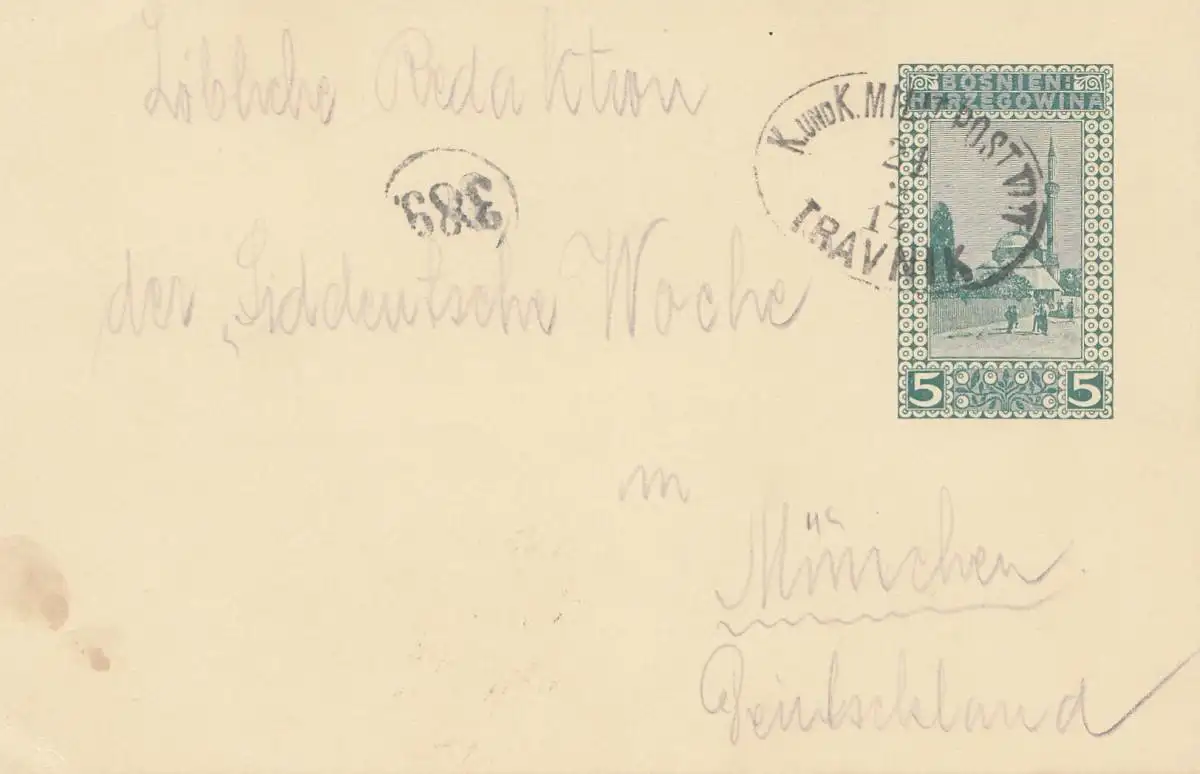 Löbliche Redaktion
der „Süddeutsche Woche
in
München
Deutschland
BOSNIEN-
HERZEGOWINA
5 5
K. UND K. MILIT. POST
TRAVNIK
389.